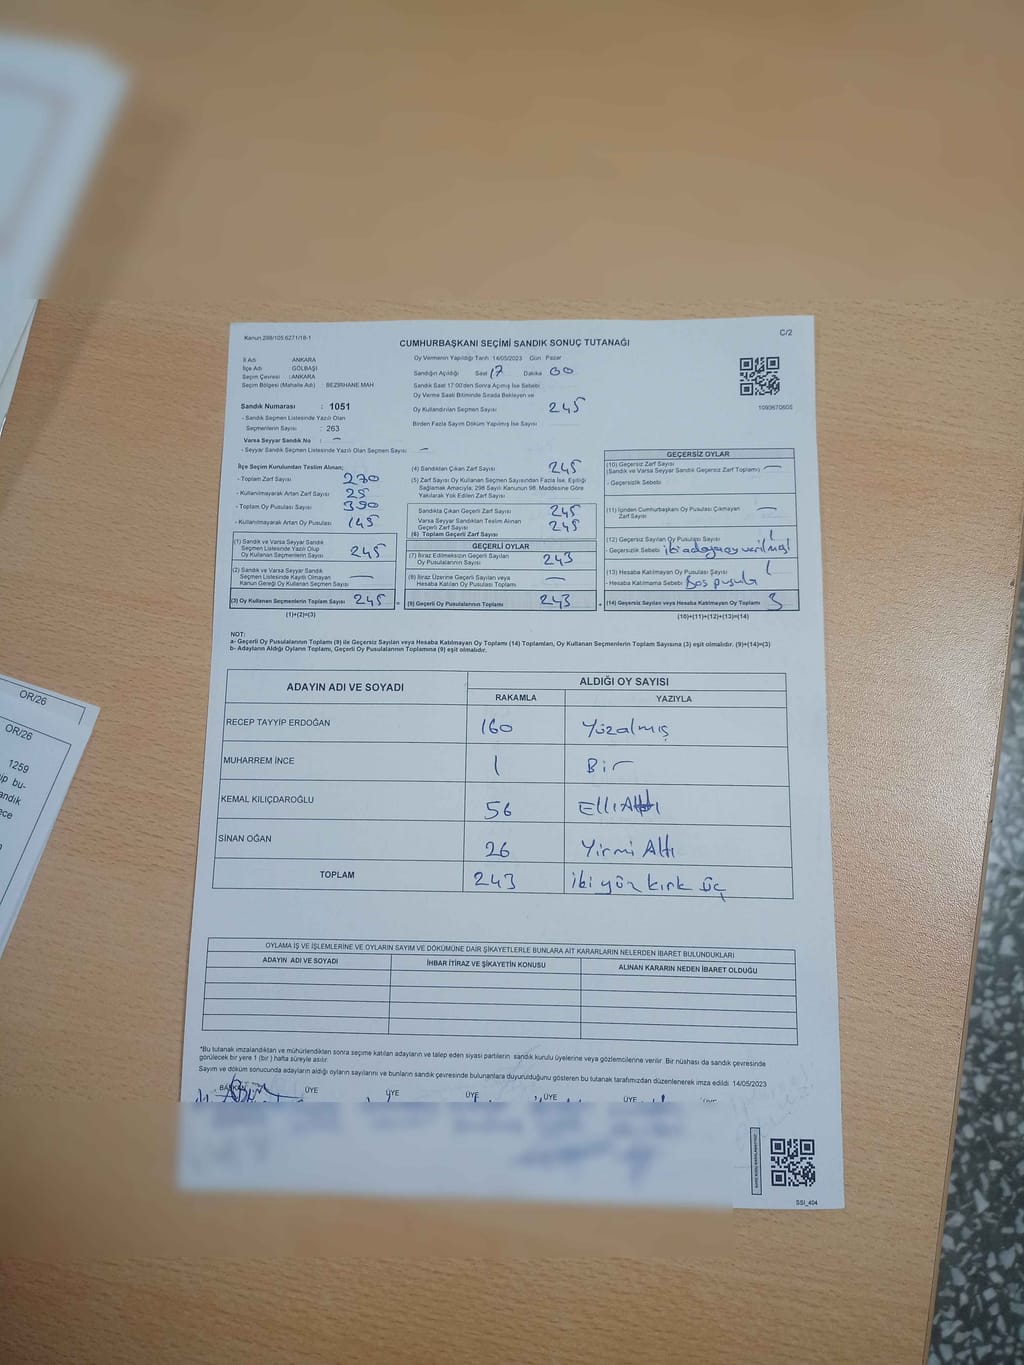 Kanun:298/105.6271/18-1
C/2
CUMHURBAŞKANI SEÇİMİ SANDIK SONUÇ TUTANAĞI
İl Adı : ANKARA
İlçe Adı : GÖLBAŞI
Seçim Çevresi : ANKARA
Seçim Bölgesi (Mahalle Adı) : BEZİRHANE MAH
Oy Vermenin Yapıldığı Tarih 14/05/2023 Gün Pazar
Sandığın Açıldığı Saat 17 Dakika 00
Sandık Saat 17:00'den Sonra Açılmış İse Sebebi
Oy Verme Saati Bitiminde Sırada Bekleyen ve
Oy Kullandırılan Seçmen Sayısı 245
Birden Fazla Sayım Döküm Yapılmış İse Sayısı
1093670605
Sandık Numarası : 1051
- Sandık Seçmen Listesinde Yazılı Olan
Seçmenlerin Sayısı : 263
Varsa Seyyar Sandık No : —
- Seyyar Sandık Seçmen Listesinde Yazılı Olan Seçmen Sayısı —
İlçe Seçim Kurulundan Teslim Alınan;
- Toplam Zarf Sayısı 270
- Kullanılmayarak Artan Zarf Sayısı 25
- Toplam Oy Pusulası Sayısı 390
- Kullanılmayarak Artan Oy Pusulası 145
(1) Sandık ve Varsa Seyyar Sandık
Seçmen Listesinde Yazılı Olup
Oy Kullanan Seçmenlerin Sayısı 245
(2) Sandık ve Varsa Seyyar Sandık
Seçmen Listesinde Kayıtlı Olmayan
Kanun Gereği Oy Kullanan Seçmen Sayısı —
(3) Oy Kullanan Seçmenlerin Toplam Sayısı 245
(1)+(2)=(3)
(4) Sandıktan Çıkan Zarf Sayısı 245
(5) Zarf Sayısı Oy Kullanan Seçmen Sayısından Fazla İse, Eşitliği
Sağlamak Amacıyla; 298 Sayılı Kanunun 98. Maddesine Göre
Yakılarak Yok Edilen Zarf Sayısı
Sandıkta Çıkan Geçerli Zarf Sayısı 245
Varsa Seyyar Sandıktan Teslim Alınan
Geçerli Zarf Sayısı 245
(6) Toplam Geçerli Zarf Sayısı
GEÇERLİ OYLAR
(7) İtiraz Edilmeksizin Geçerli Sayılan
Oy Pusulalarının Sayısı 243
(8) İtiraz Üzerine Geçerli Sayılan veya
Hesaba Katılan Oy Pusulası Toplamı —
(9) Geçerli Oy Pusulalarının Toplamı 243
GEÇERSİZ OYLAR
(10) Geçersiz Zarf Sayısı
(Sandık ve Varsa Seyyar Sandık Geçersiz Zarf Toplamı) —
- Geçersizlik Sebebi
(11) İçinden Cumhurbaşkanı Oy Pusulası Çıkmayan
Zarf Sayısı —
(12) Geçersiz Sayılan Oy Pusulası Sayısı 1
- Geçersizlik Sebebi iki adaya oy verilmesi
(13) Hesaba Katılmayan Oy Pusulası Sayısı 1
- Hesaba Katılmama Sebebi Boş pusula
(14) Geçersiz Sayılan veya Hesaba Katılmayan Oy Toplamı 3
(10)+(11)+(12)+(13)=(14)
NOT:
a- Geçerli Oy Pusulalarının Toplamı (9) ile Geçersiz Sayılan veya Hesaba Katılmayan Oy Toplamı (14) Toplamları, Oy Kullanan Seçmenlerin Toplam Sayısına (3) eşit olmalıdır. (9)+(14)=(3)
b- Adayların Aldığı Oyların Toplamı, Geçerli Oy Pusulalarının Toplamına (9) eşit olmalıdır.
ADAYIN ADI VE SOYADI
ALDIĞI OY SAYISI
RAKAMLA YAZIYLA
RECEP TAYYİP ERDOĞAN 160 Yüzalmış
MUHARREM İNCE 1 Bir
KEMAL KILIÇDAROĞLU 56 Elli Altı
SİNAN OĞAN 26 Yirmi Altı
TOPLAM 243 iki yüz kırk üç
OYLAMA İŞ VE İŞLEMLERİNE VE OYLARIN SAYIM VE DÖKÜMÜNE DAİR ŞİKAYETLERLE BUNLARA AİT KARARLARIN NELERDEN İBARET BULUNDUKLARI
ADAYIN ADI VE SOYADI İHBAR İTİRAZ VE ŞİKAYETİN KONUSU ALINAN KARARIN NEDEN İBARET OLDUĞU
*Bu tutanak imzalandıktan ve mühürlendikten sonra seçime katılan adayların ve talep eden siyasi partilerin sandık kurulu üyelerine veya gözlemcilerine verilir. Bir nüshası da sandık çevresinde
görülecek bir yere 1 (bir) hafta süreyle asılır.
Sayım ve döküm sonucunda adayların aldığı oyların sayılarını ve bunların sandık çevresinde bulunanlara duyurulduğunu gösteren bu tutanak tarafımızdan düzenlenerek imza edildi 14/05/2023
BAŞKAN ÜYE ÜYE ÜYE ÜYE ÜYE
SSI_404
OR/26
OR/26
1259